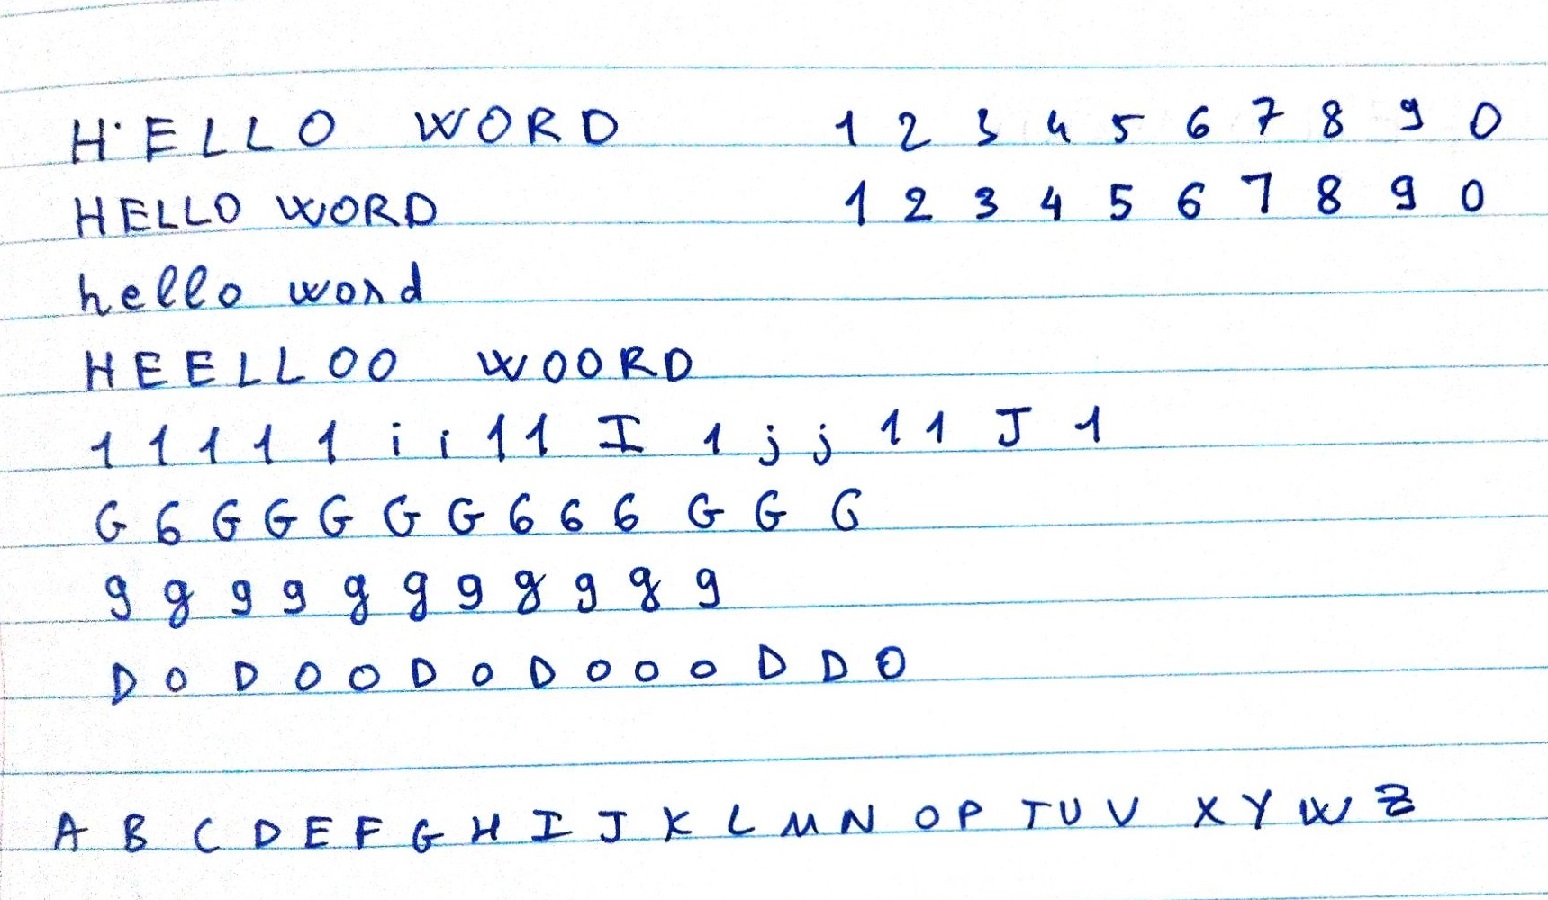 HELLO WORD 1 2 3 4 5 6 7 8 9 0
HELLO WORD 1 2 3 4 5 6 7 8 9 0
hello word
HEELLOO WOORD
1 1 1 1 1 i i 1 1 I 1 j j 1 1 J 1
G 6 G G G G G 6 6 6 G G G
g g g g g g g g g g g
D O D O O D O D O O O D D O
A B C D E F G H I J K L M N O P T U V X Y W Z